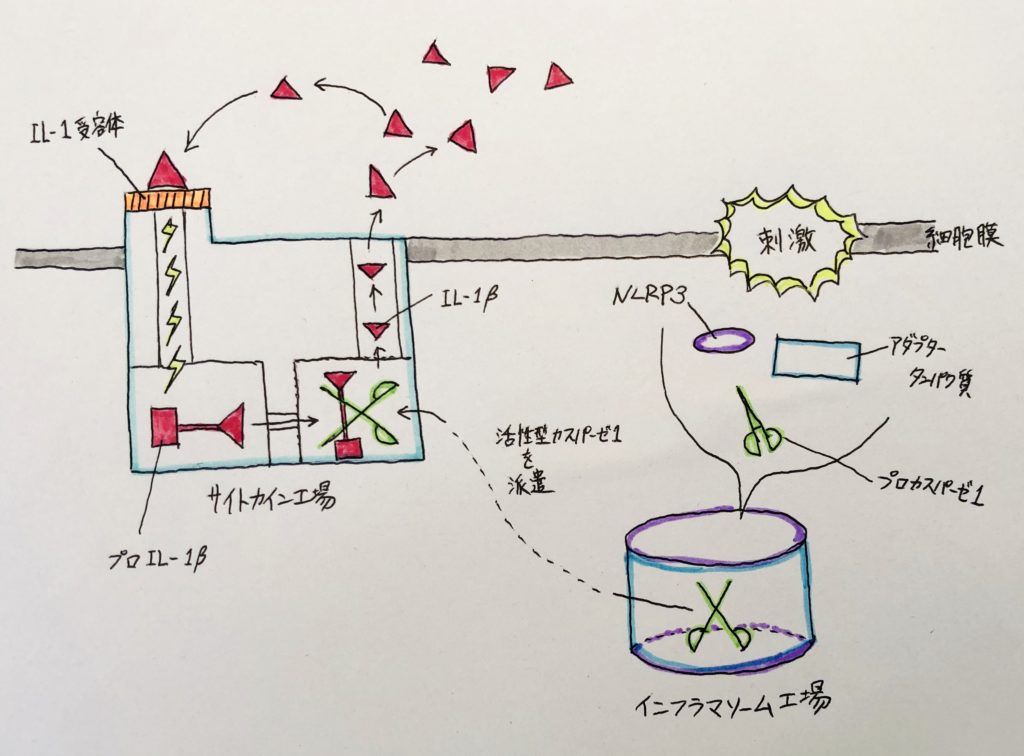 IL-1受容体
刺激
細胞膜
NLRP3
IL-1β
アダプター
タンパク質
活性型カスパーゼ1
を
派遣
プロカスパーゼ1
サイトカイン工場
プロIL-1β
インフラマソーム工場